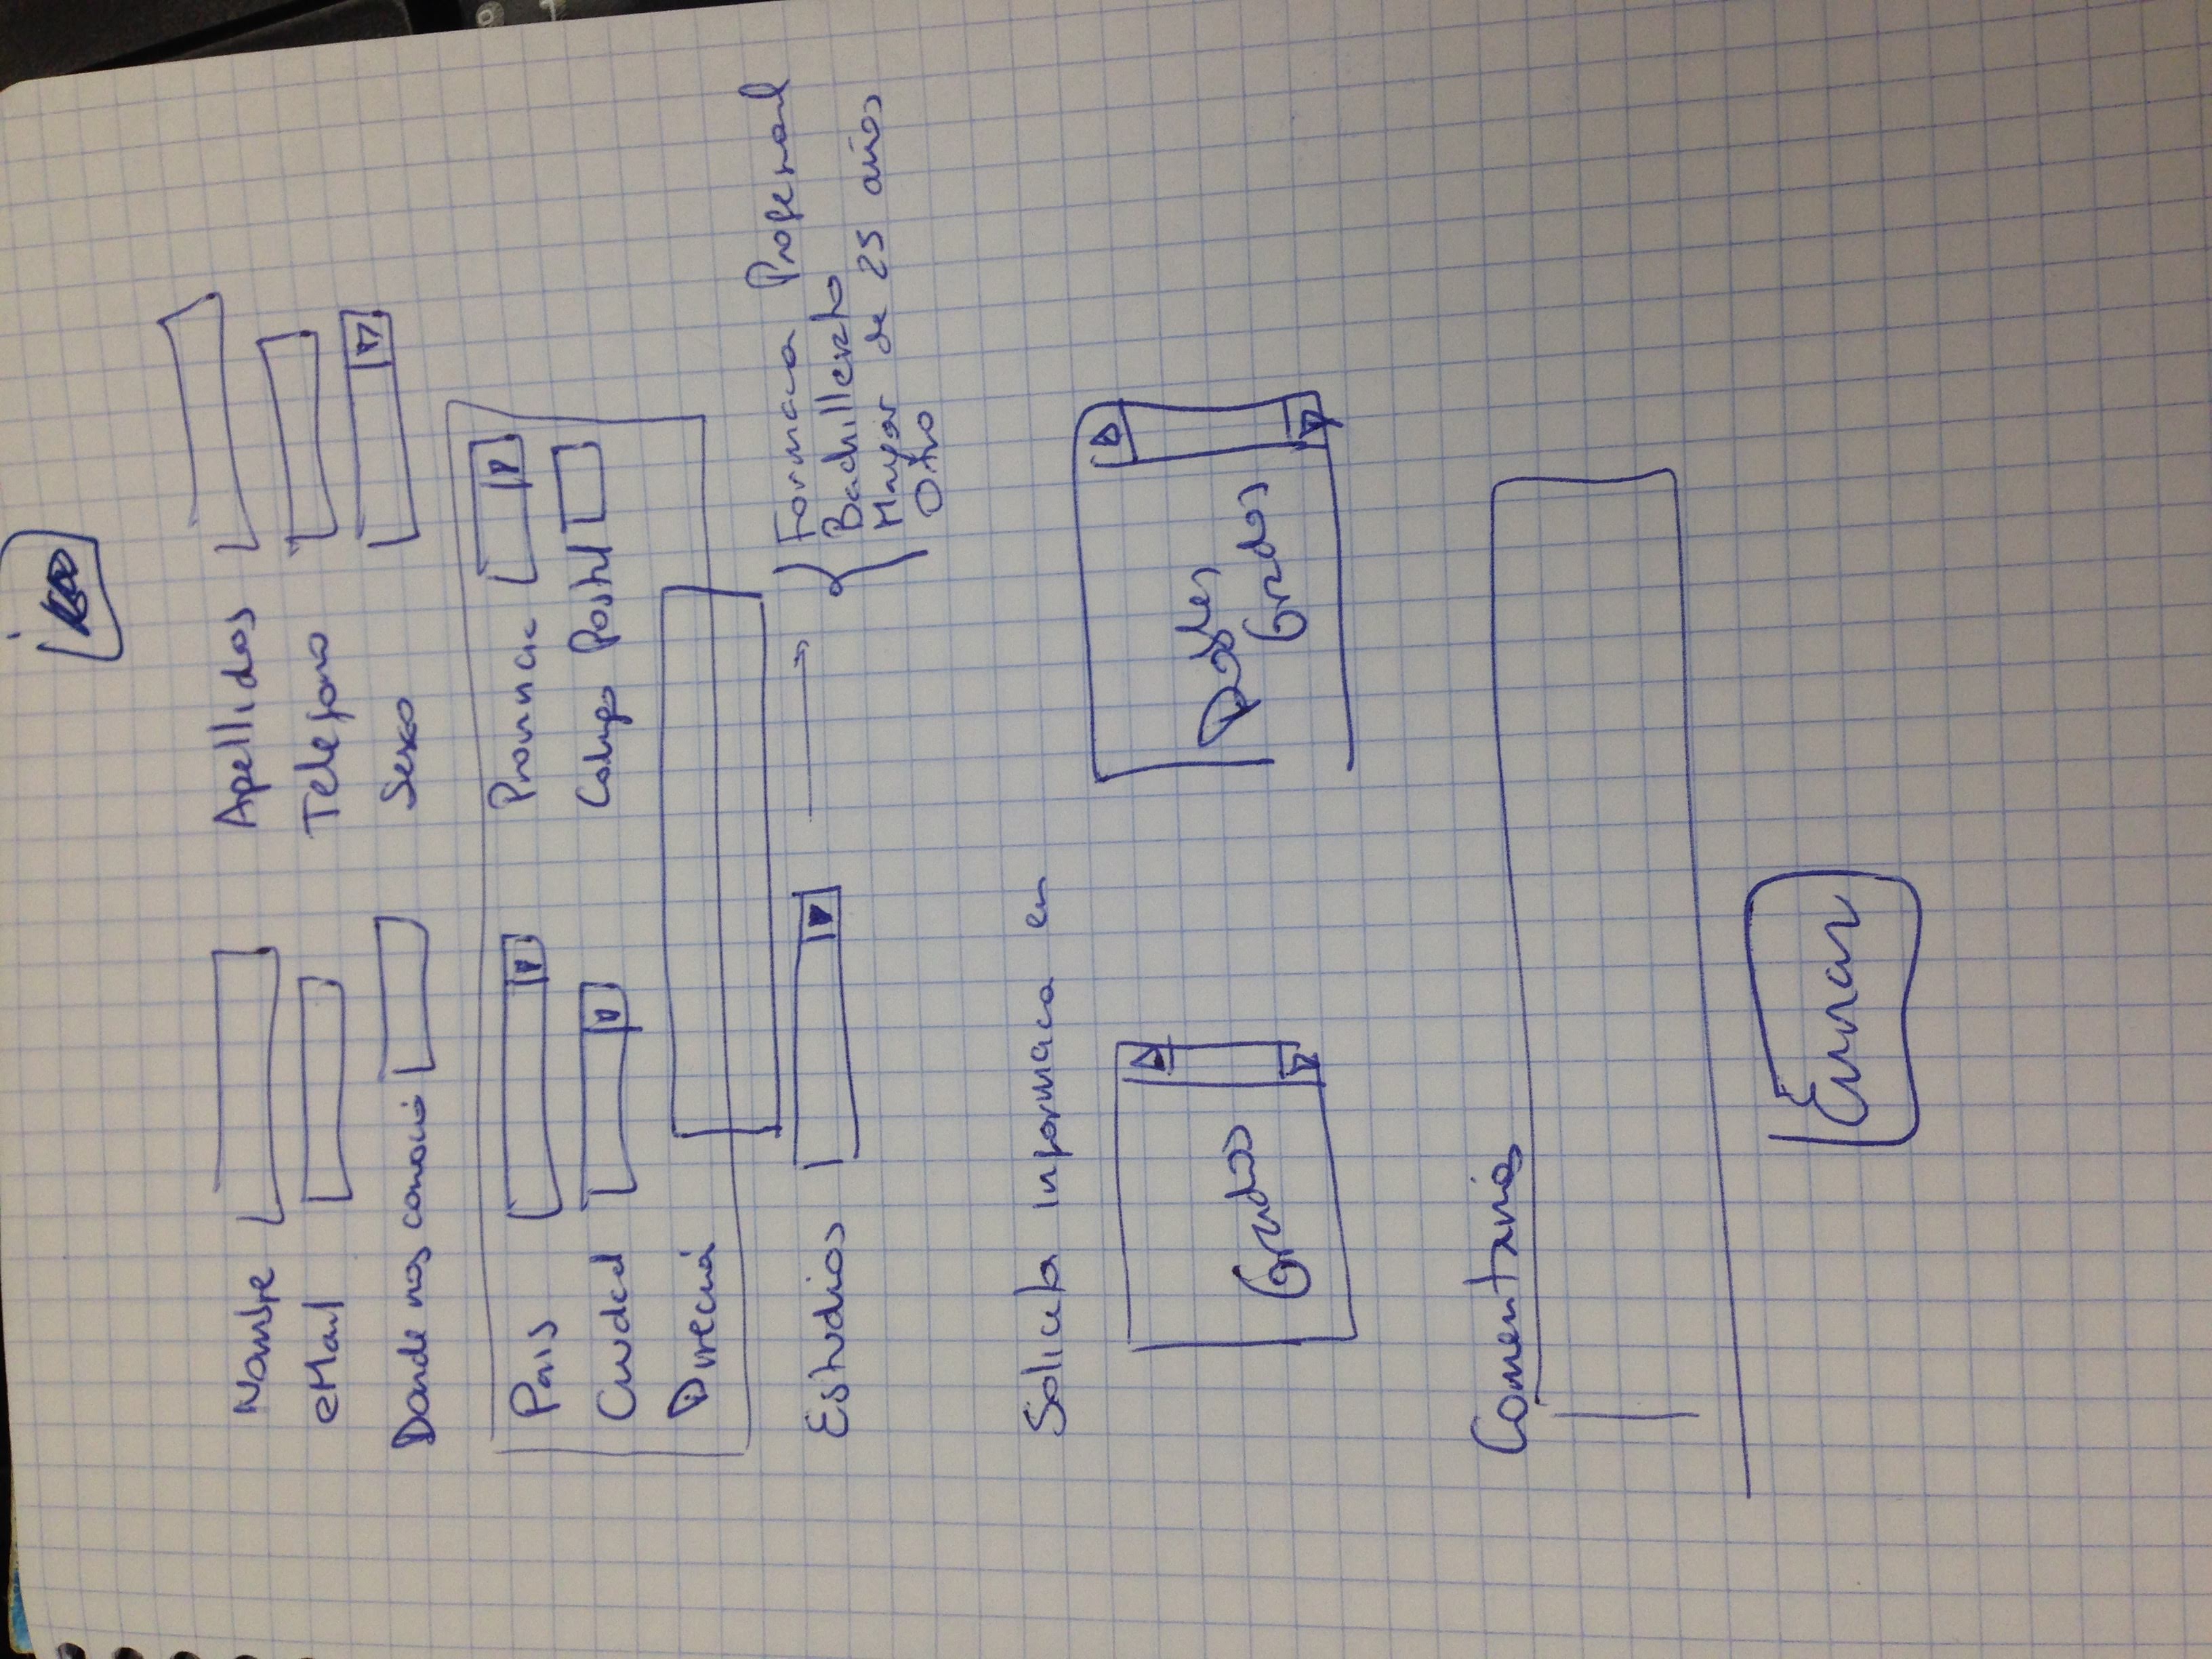 Nombre Apellidos
eMail Telefono
Donde nos conoció Sexo
Pais Provincia
Ciudad Codigo Postal
Dirección
Estudios Formacion Profesional
Bachillerato
Mayor de 25 años
Otro
Solicita informacion en
Grados Dobles
Grados
Comentarios
Enviar